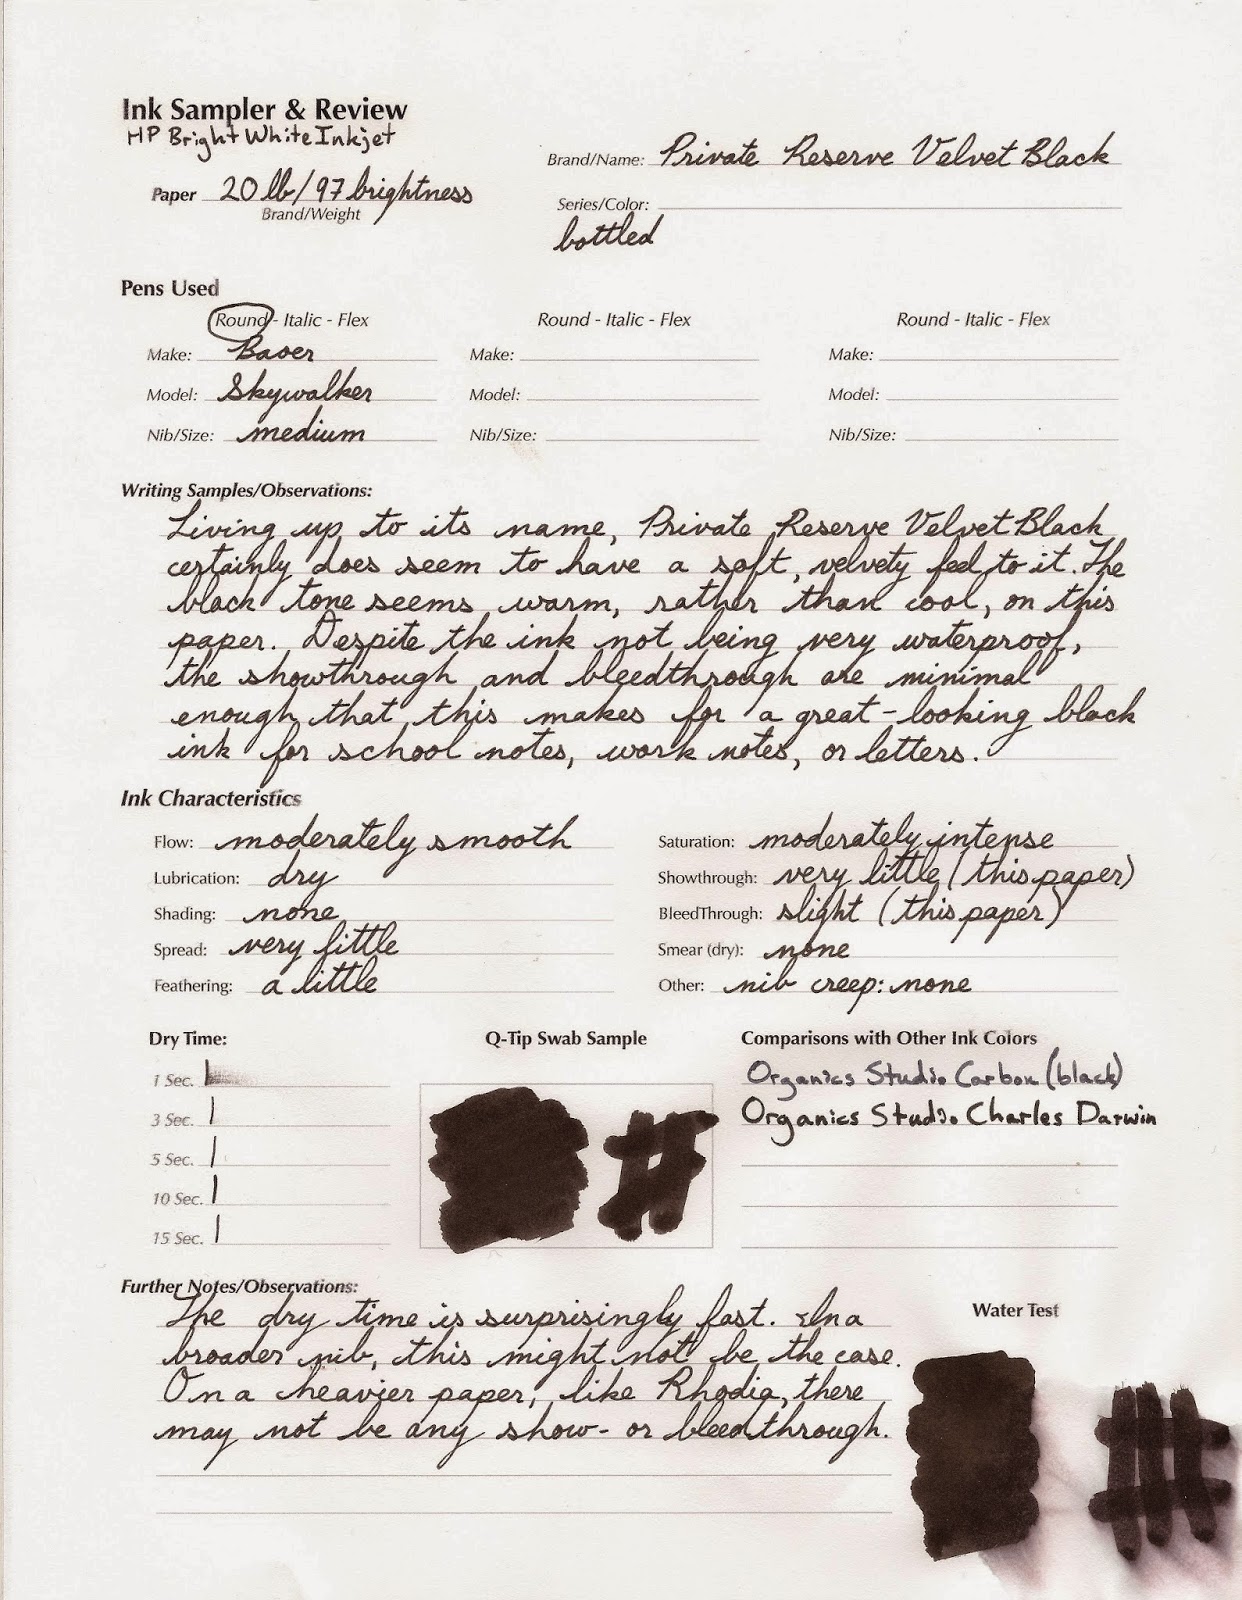 Ink Sampler & Review
HP Bright White Inkjet
Brand/Name: Private Reserve Velvet Black
Paper 20 lb/97 brightness
Brand/Weight
Series/Color:
bottled
Pens Used
Round - Italic - Flex Round - Italic - Flex Round - Italic - Flex
Make: Baoer Make: Make:
Model: Skywalker Model: Model:
Nib/Size: medium Nib/Size: Nib/Size:
Writing Samples/Observations:
Living up to its name, Private Reserve Velvet Black
certainly does seem to have a soft, velvety feel to it. The
black tone seems warm, rather than cool, on this
paper. Despite the ink not being very waterproof,
the showthrough and bleedthrough are minimal
enough that this makes for a great-looking black
ink for school notes, work notes, or letters.
Ink Characteristics
Flow: moderately smooth Saturation: moderately intense
Lubrication: dry Showthrough: very little (this paper)
Shading: none BleedThrough: slight (this paper)
Spread: very little Smear (dry): none
Feathering: a little Other: nib creep: none
Dry Time: Q-Tip Swab Sample Comparisons with Other Ink Colors
1 Sec. Organics Studio Carbon (black)
3 Sec. Organics Studio Charles Darwin
5 Sec.
10 Sec.
15 Sec.
Further Notes/Observations:
Water Test
The dry time is surprisingly fast. In a
broader nib, this might not be the case.
On a heavier paper, like Rhodia, there
may not be any show- or bleedthrough.